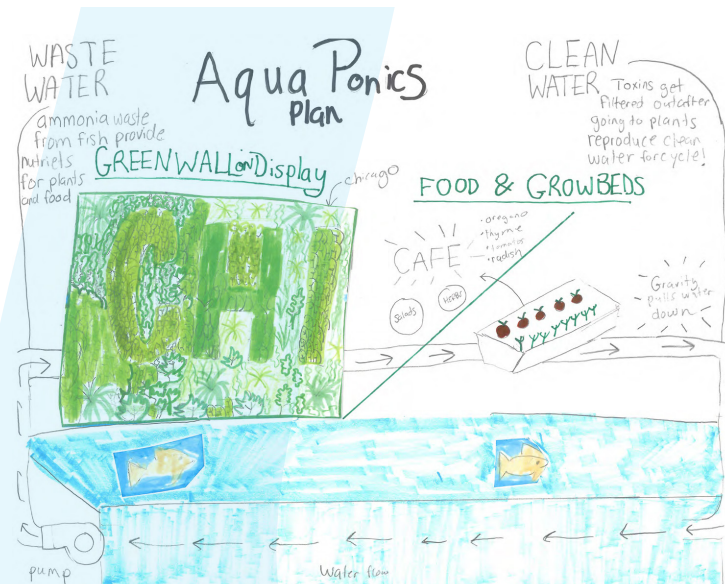 WASTE
WATER
ammonia waste
from fish provide
nutriets
for plants
and food
Aqua Ponics
Plan
CLEAN
WATER
Toxins get
filtered out after
going to plants
reproduce clean
water for cycle!
GREEN WALL on Display
chicago
CHI
FOOD & GROWBEDS
•oregano
•thyme
•tomatoes
•radish
CAFE
Salads
HERBS
Gravity
pulls water
down
pump
Water flow